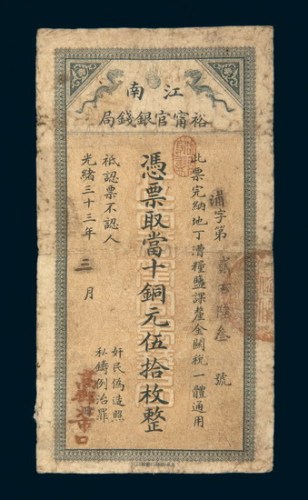 江南
裕甯官銀錢局
此票完納地丁漕糧鹽課釐金關稅一體通用
字第貳百陸叁號
憑票取當十銅元伍拾枚整
祗認票不認人
光緒三十三年三月
奸民偽造照
私鑄例治罪